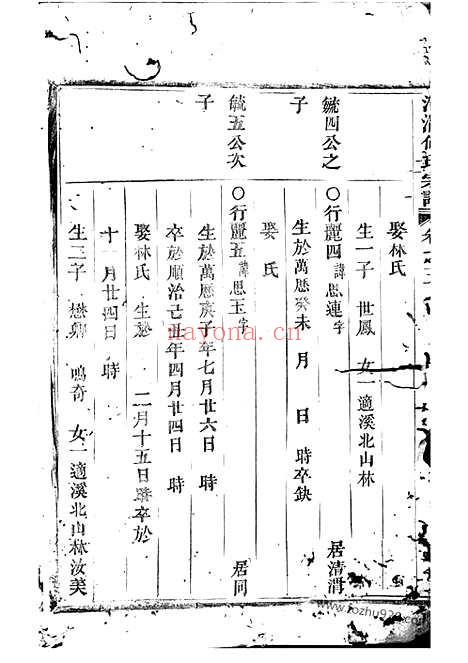 娶林氏
生一子 世鳳 女一適溪北山林
毓四公之子
○行麗四 諱思連 字 居清渭
生於萬歷癸未 月 日 時卒缺
娶 氏
毓五公次子
○行麗五 諱思玉 字 居同
生於萬歷庚子年七月廿六日 時
卒於順治己丑年四月廿四日 時
娶林氏 生於 二月十五日 卒於
十 月廿四日 時
生二子 鳴奇 女一適溪北山林汝美
nayona.cn
www.fozhu920.com